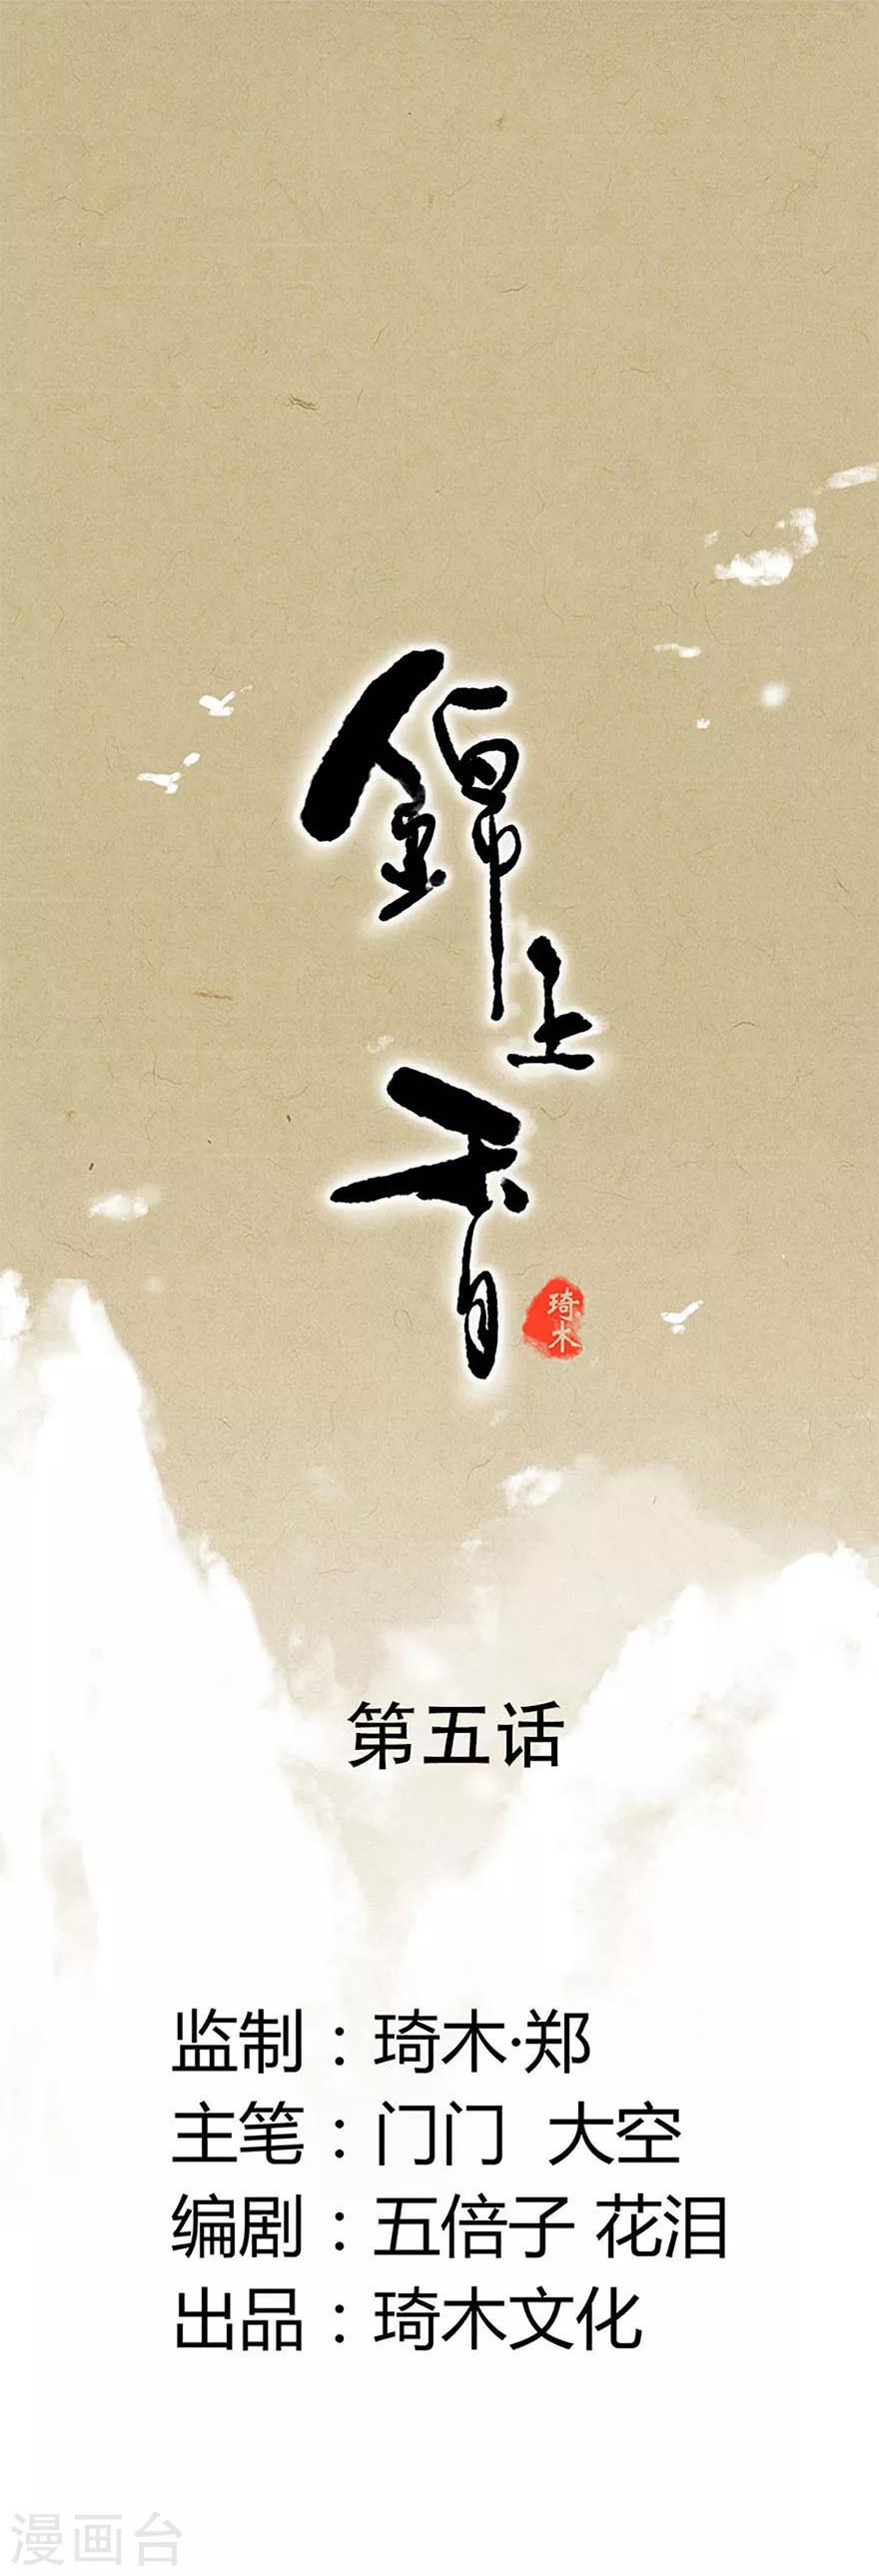 錦上香
琦木
第五话
监制：琦木·郑
主笔：门门 大空
编剧：五倍子 花泪
出品：琦木文化
漫画台